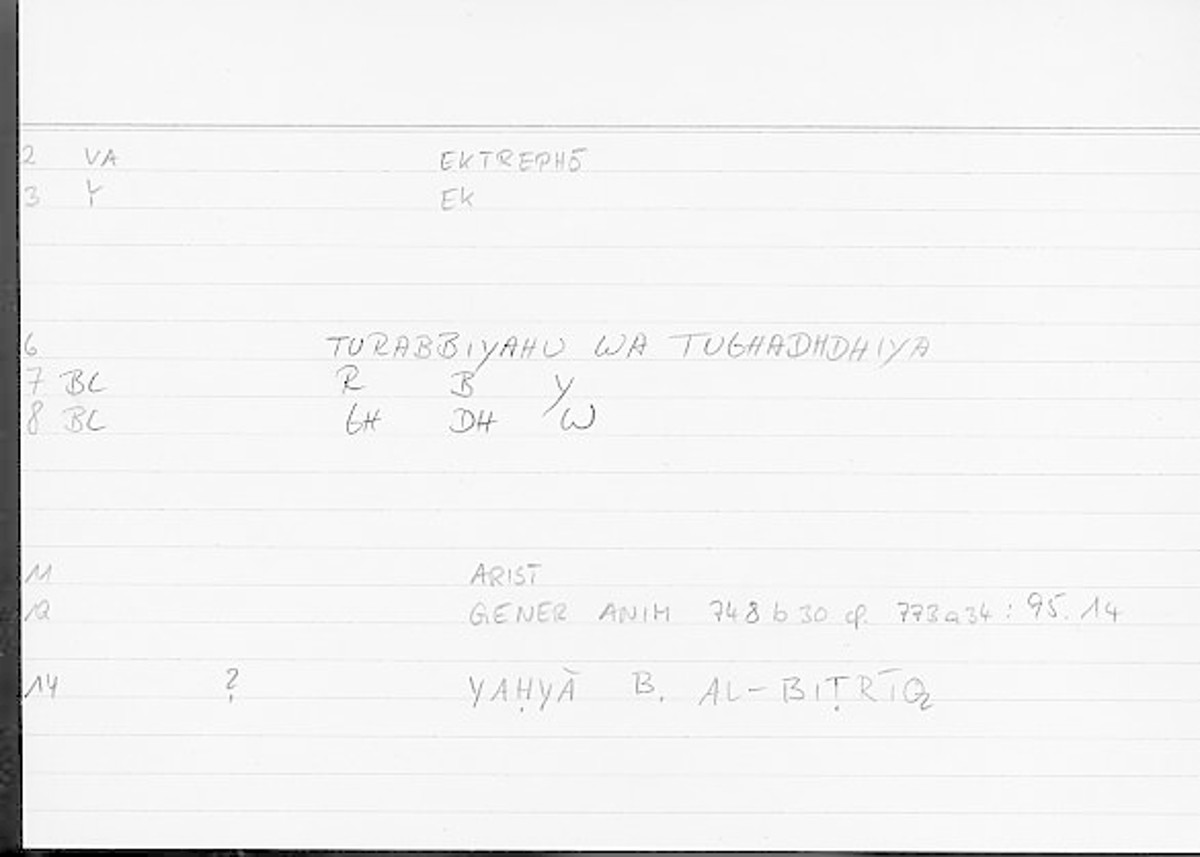 2 VA EKTREPHŌ
3 Y EK
6 TURABBIYAHU WA TUGHADHDHIYA
7 BC R B Y
8 BC GH DH /W
11 ARIST
12 GENER ANIM 748 b 30 cf. 773 a 34 : 95. 14
14 ? YAḤYĀ B. AL-BIṬRĪQ